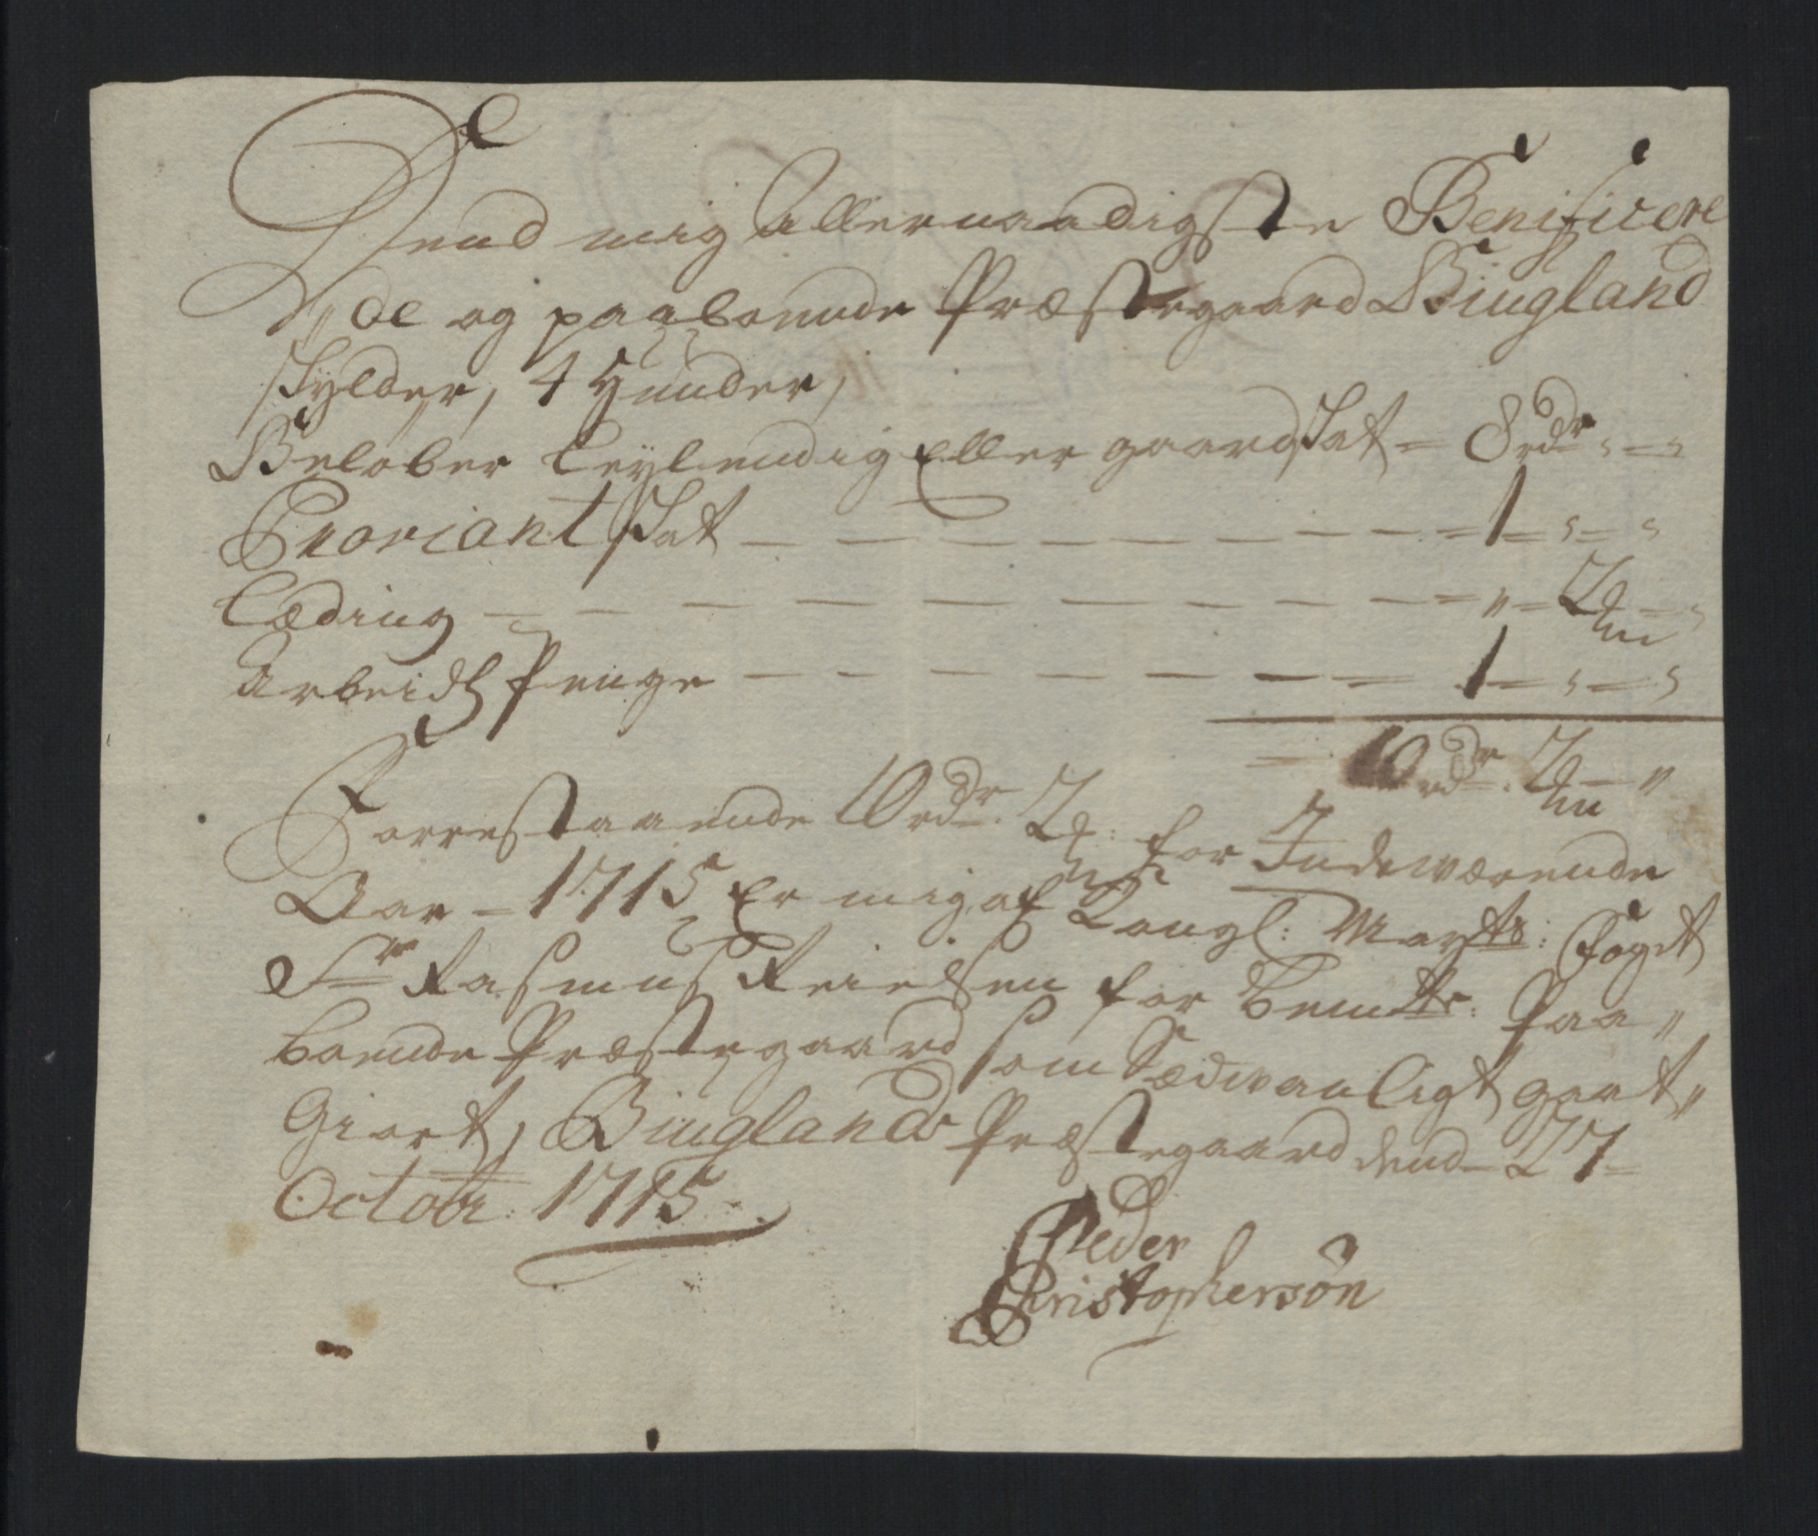 Dend mig Allernaadigste Benificere
de og paaboende Præstegaard Biugland
skylder, 4 Hunder,
Beløber Leylendig Eller gaardskat = 8 rdr
Proviant skat — — — — — — — 1 =
Læding — — — — — — — " = 2
Arbeids Penge — — — — — — 1 =
10 rdr. 2 "
Forrestaaende 10 rdr. 2 for Indeværende
Aar – 1715 Er mig af Kongl: Mayts: Foget
Sr Rasmus Reielsen for bemte: Paa"
boende Præstegaard som Sædwanligt godt"
Giort, Biuglands Præstegaard dend 27
Octobr: 1715
Peder
Christophersøn